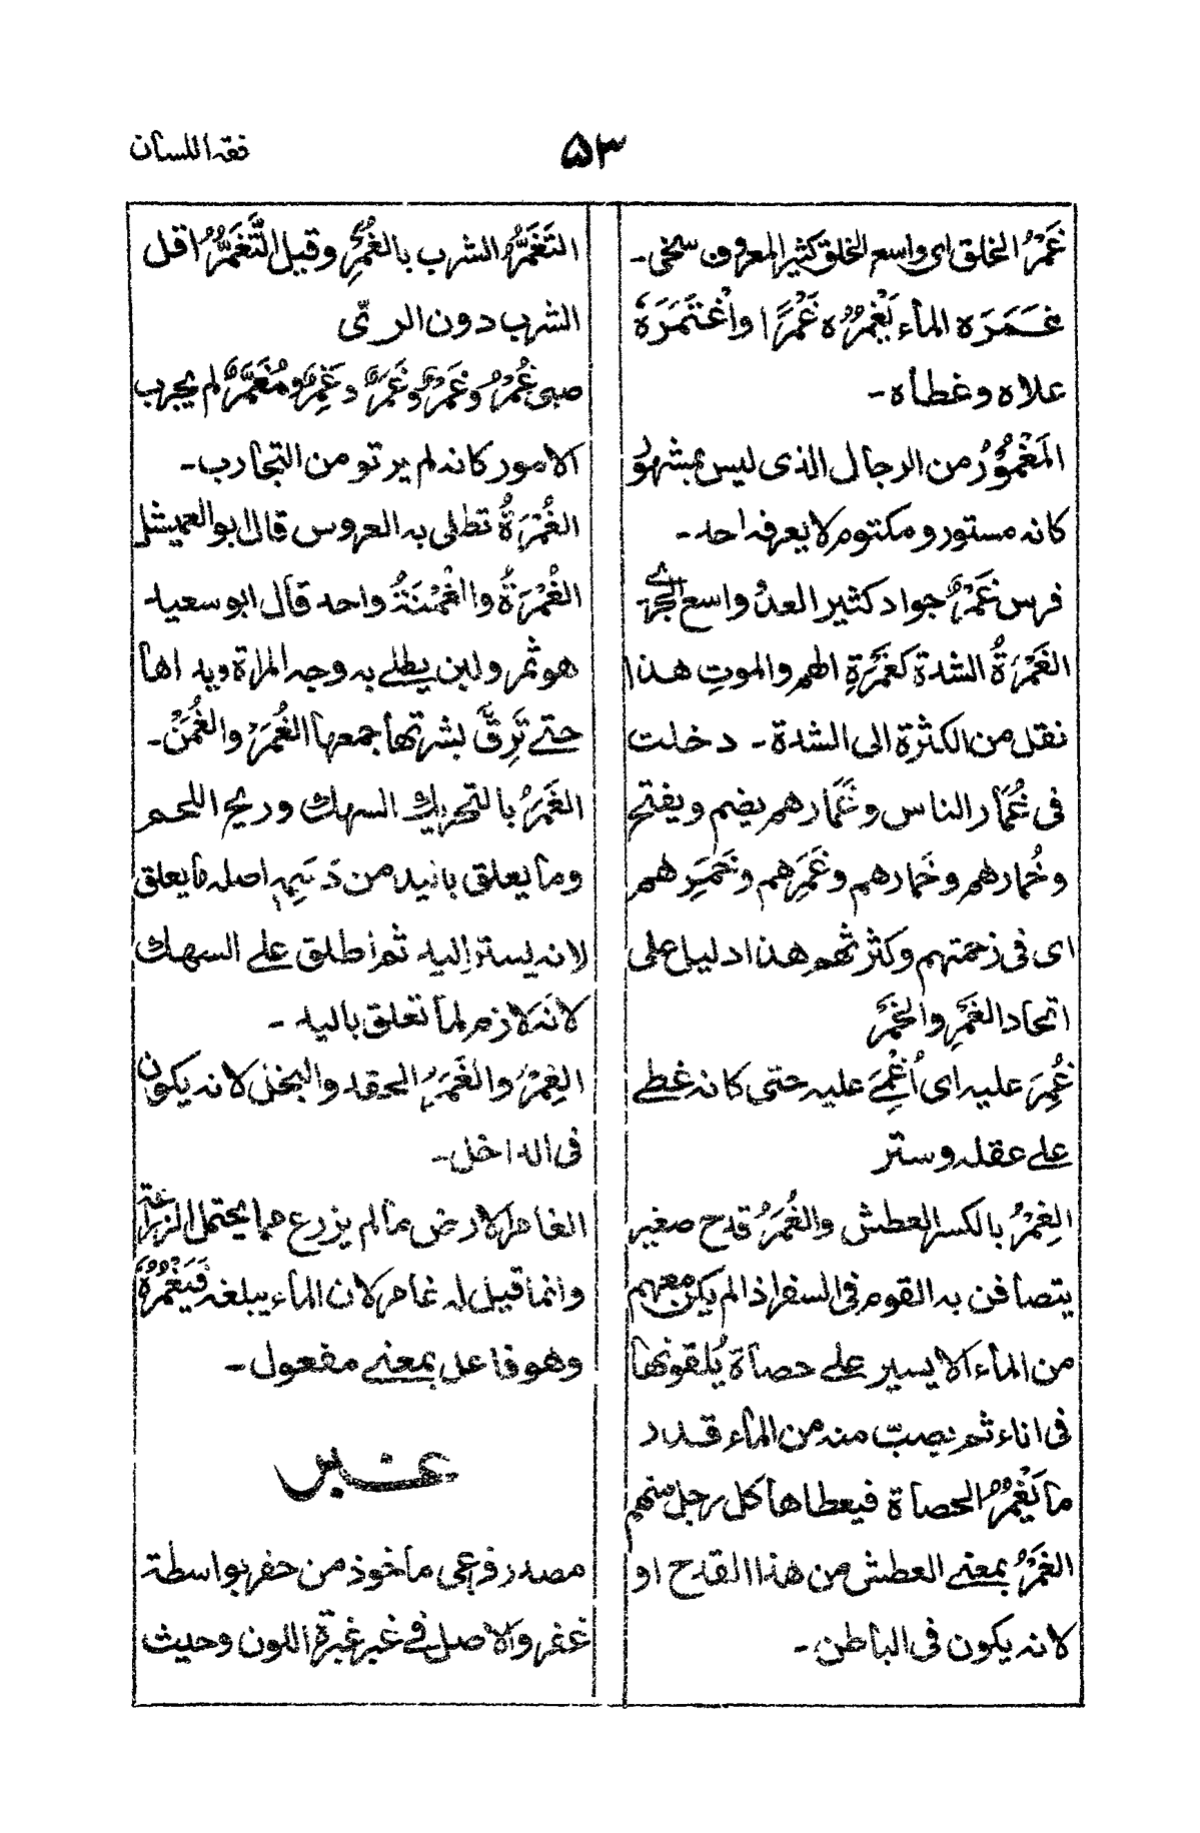 فقه اللسان
۵۳
غَمْرُ الخلق ای واسع الخلق کثیر المعروف سخی۔
غَمَرَه الماء یَغْمُرُه غَمْرًا واغْتَمَرَهٗ
علاه وغطاه۔
المَغْمُوْرُ من الرجال الذی لیس بمشهور
کانه مستور ومکتوم لا یعرفه احد۔
فرس غَمْرٌ جواد کثیر العدو واسع الجری۔
الغَمْرَةُ الشدة کغَمْرَةِ الهم والموتِ هذا
نقل من الکثرة الی الشدة۔ دخلت
فی غُمَار الناس وغَمَارهم یضم ویفتح
وخُمارهم وخَمارهم وغَمَرِهم وخَمَرِهم
ای فی زحمتهم وکثرتهم هذا دلیل علی
اتحاد الغَمَرِ والخَمَرِ
غُمِرَ علیه ای اُغْمِیَ علیه حتی کانه غطے
علے عقله وستر
الغِمْرُ بالکسر العطش والغُمَرُ قدح صغیر
یتصافن به القوم فی السفر اذا لم یکن معهم
من الماء الا یسیر علے حصاة یُلقونها
فی اناء ثم یصبّ منه من الماء قدر
ما یَغْمُرُ الحصاة فیعطاها کل رجل منهم
الغَمْرُ بمعنے العطش من هذا القدح او
لانه یکون فی الباطن۔
التَغَمُّرُ الشرب بالغُمَرِ وقیل التَّغَمُّرُ اقل
الشرب دون الریّ
صبی غُمْرٌ وغَمْرٌ وغَمَرٌ وغَمِرٌ ومُغَمَّرٌ لم یجرب
الامور کانه لم یرتو من التجارب۔
الغُمْرَةُ تطلی به العروس قال ابو العمیثل
الغُمْرَةُ والغُمْنَةُ واحد قال ابو سعید
هو ثمر ولبن یطلے به وجه المراة ویداها
حتے تَرِقَّ بشرتها جمعها الغُمَرُ والغُمَنُ۔
الغَمَرُ بالتحریك السهك وریح اللحم
وما یعلق بالید من دَسَمِه اصله ما یعلق
لانه یستر الید ثم اطلق علے السهك
لانه لازم لما تعلق بالید۔
الغِمْرُ والغَمَرُ الحقد والبخل لانه یکون
فی الداخل۔
الغامر الارض مالم یزرع مما یحتمل الزراعة
وانما قیل له غامر لان الماء یبلغه فَیَغْمُرُهٗ
وهو فاعل بمعنے مفعول۔
غبر
مصدر فرعی ماخوذ من حفر بواسطة
غفر والاصل فے غبر غبرة اللون وحیث